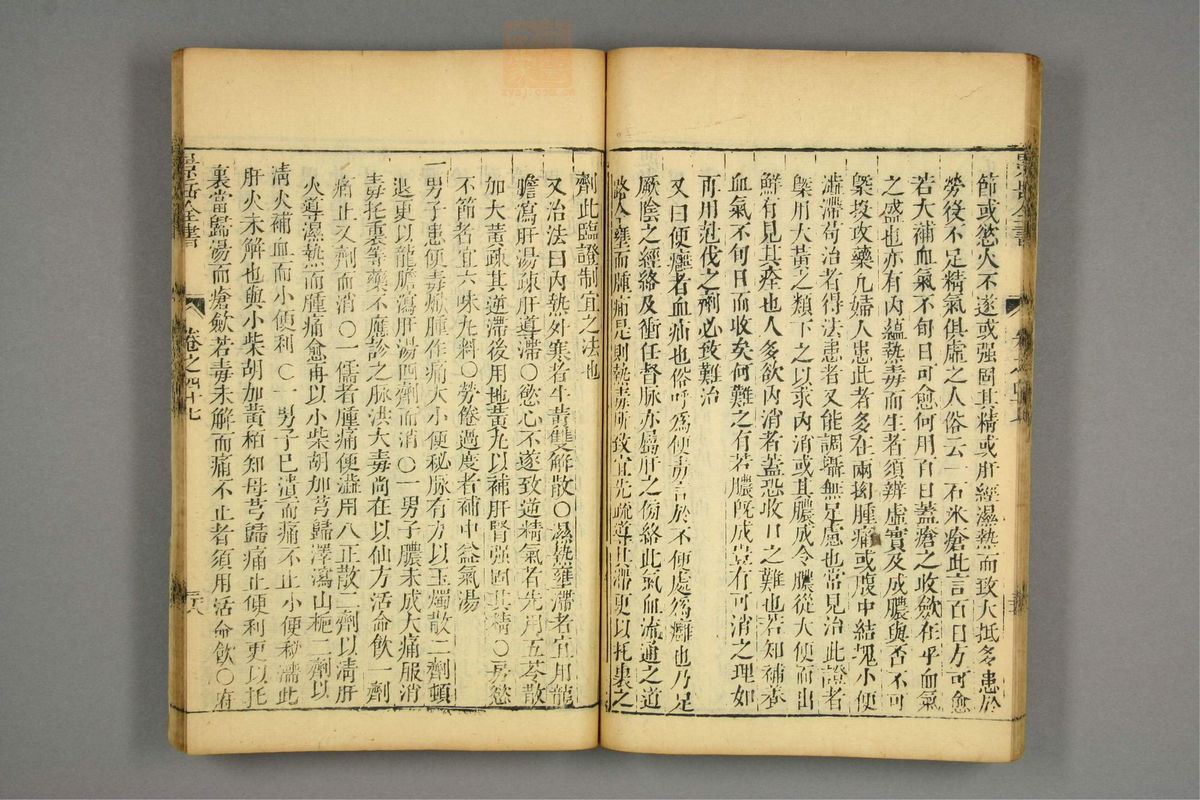 節或慾火不遂或强固其精或肝經濕熱而致大抵多患於
勞役不足精氣俱虛之人俗云一石米瘡此言百日方可愈
若大補血氣不旬日可愈何用百日蓋瘡之收斂在乎血氣
之盛也亦有內蘊熱毒而生者須辨虛實及成膿與否不可
槩投攻藥凡婦人患此者多在兩拗腫痛或腹中結塊小便
澁滯苟治者得法患者又能調攝無足慮也常見治此證者
槩用大黃之類下之以求內消或其膿成令膿從大便而出
鮮有見其痊也人多欲內消者蓋恐收口之難也若知補養
血氣不旬日而收矣何難之有若膿旣成豈有可消之理如
再用尅伐之劑必致難治
又曰便癰者血疝也俗呼爲便毒言於不便處爲癰也乃足
厥陰之經絡及衝任督脉亦屬肝之傍絡此氣血流通之道
路今壅而腫痛是則熱毒所致宜先疏導其滯更以托裏之
劑此臨證制宜之法也
又治法曰內熱外寒者牛黃雙解散〇濕熱壅滯者宜用龍
膽瀉肝湯疎肝導滯〇慾心不遂致逆精氣者先用五苓散
加大黃疎其逆滯後用地黃丸以補肝腎强固其精〇房慾
不節者宜六味丸料〇勞倦過度者補中益氣湯
一男子患便毒焮腫作痛大小便秘脉有力以玉燭散二劑頓
退更以龍膽瀉肝湯四劑而消〇一男子膿未成大痛服消
毒托裏等藥不應診之脉洪大毒尙在以仙方活命飮一劑
痛止又劑而消〇一儒者腫痛便澁用八正散二劑以淸肝
火導濕熱而腫痛愈再以小柴胡加芎歸澤瀉山梔二劑以
淸火補血而小便利〇一男子已潰而痛不止小便秘濇此
肝火未解也與小柴胡加黃栢知母芎歸痛止便利更以托
裏當歸湯而瘡斂若毒未解而痛不止者須用活命飮〇府
景岳全書
卷之四十七